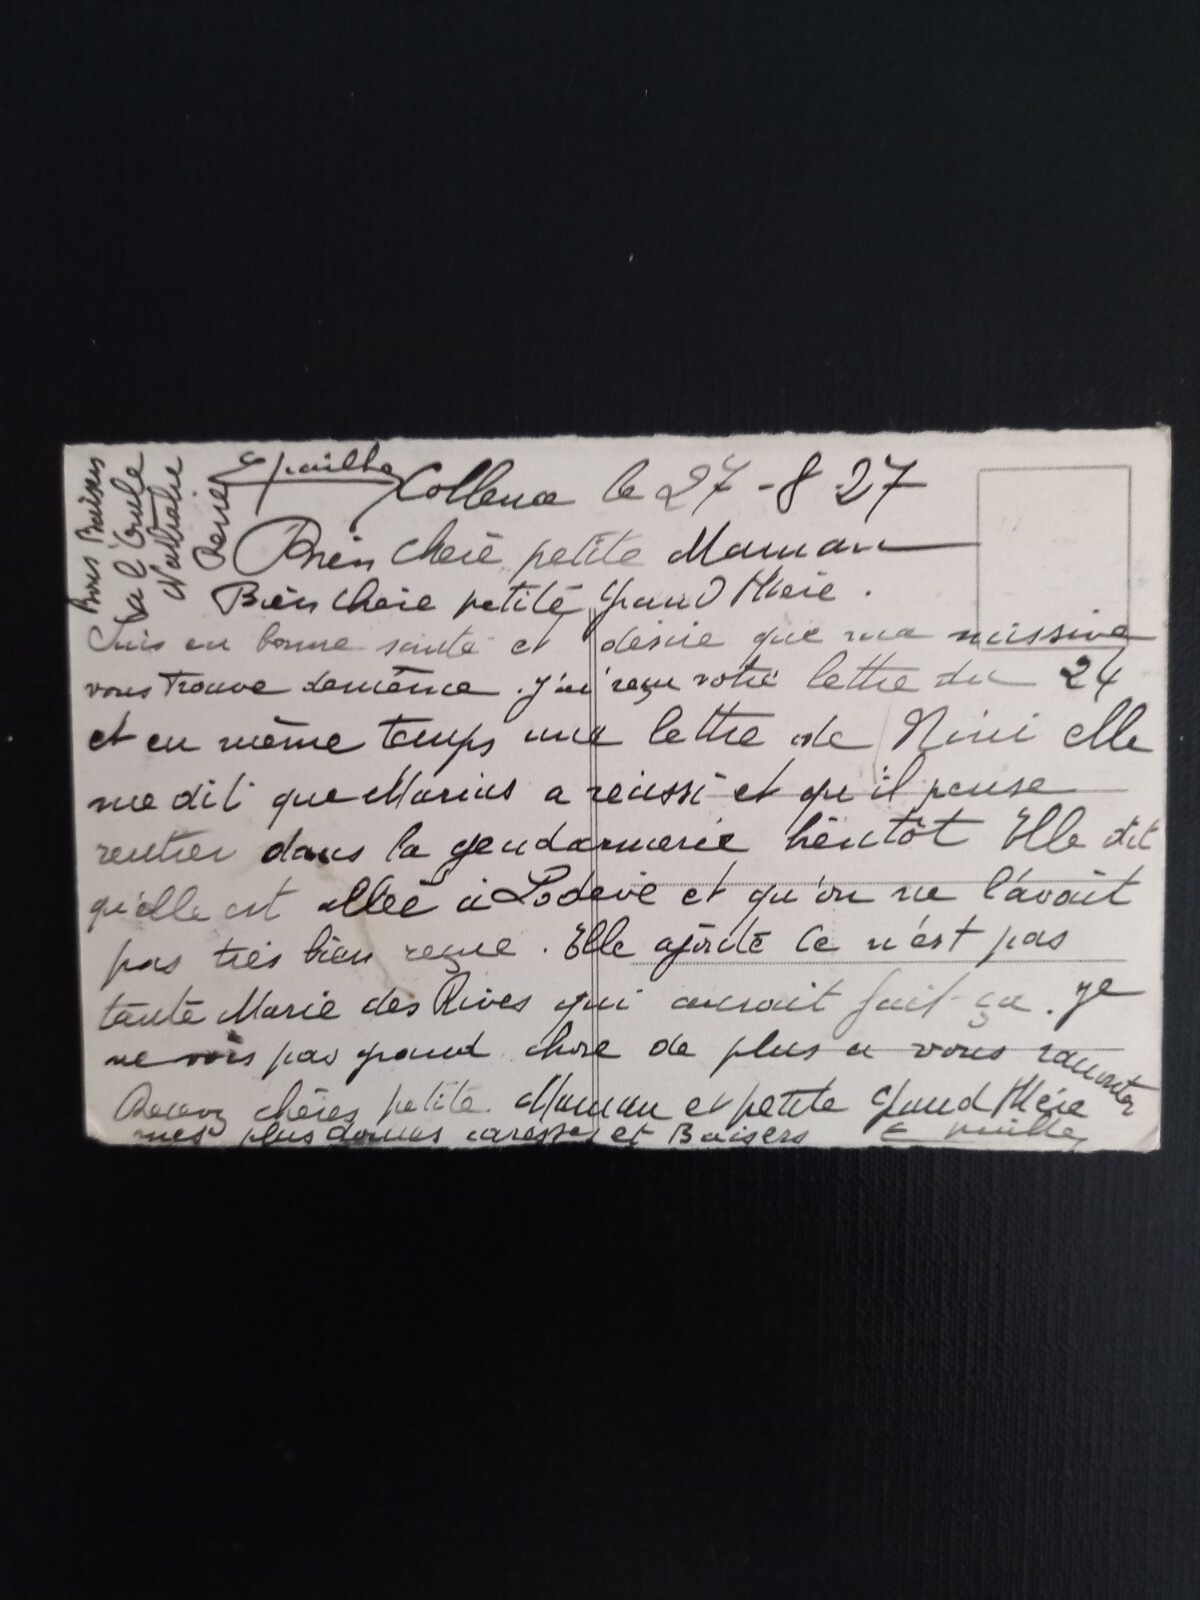 Collena le 27-8 27
Bien cheré petite Maman
Bien chere petite Grand Mère.
Suis en bonne santé et désire que ma missive
vous trouve demême. J'ai reçu votre lettre du 24
et en même temps une lettre de Nini elle
me dit que Marius a réussi et qu'il pense
rentrer dans la gendarmerie bientôt Elle dit
qu'elle est allée à Lodève et qu'on ne l'avait
pas très bien reçue. Elle ajoute ce n'est pas
tante Marie des Rives qui aurait fait ça. Je
ne vois pas grand chose de plus a vous raconter
Recevez chères petite Maman et petite Grand Mère
mes plus douces caresses et Baisers
Bons Baisers
a l'Oncle